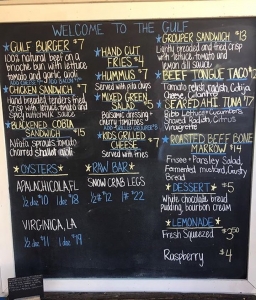 WELCOME TO THE GULF
GULF BURGER $7
100% natural beef on a
brioche bun with lettuce
tomato and garlic aioli
ADD BACON $1
CHICKEN SANDWICH $7
Hand breaded tenders fried
Crisp with lettuce tomato and
Spicy buttermilk sauce
BLACKENED COBIA
SANDWICH $15
Alfalfa sprouts tomato
Charred shallot aioli
OYSTERS
APALACHICOLA, FL
1/2 doz $10 1doz $18
VIRGINICA, LA
1/2 doz $11 1doz $19
HAND CUT
FRIES $4
HUMMUS $7
Served with pita chips
MIXED GREEN
SALAD $5
Balsamic dressing -
Cherry tomatoes
KIDS GRILLED
CHEESE $7
Served with fries
RAW BAR
SNOW CRAB LEGS
1/2 lb $12 1lb $22
GROUPER SANDWICH $13
Lightly breaded and fried crisp
with lettuce tomato and
Cayen dill sauce
BEEF TONGUE TACO $12
Tomato relish radish
SEARED AHI TUNA $17
Bibb Lettuce Cucumbers
Shaved Radish Citrus
Vinaigrette
ROASTED BEEF BONE
MARROW $14
Frisee + Parsley Salad,
Fermented mustard, Crusty
Bread
DESSERT $5
White chocolate bread
pudding bourbon cream
LEMONADE
Fresh Squeezed $3.50
Raspberry $4